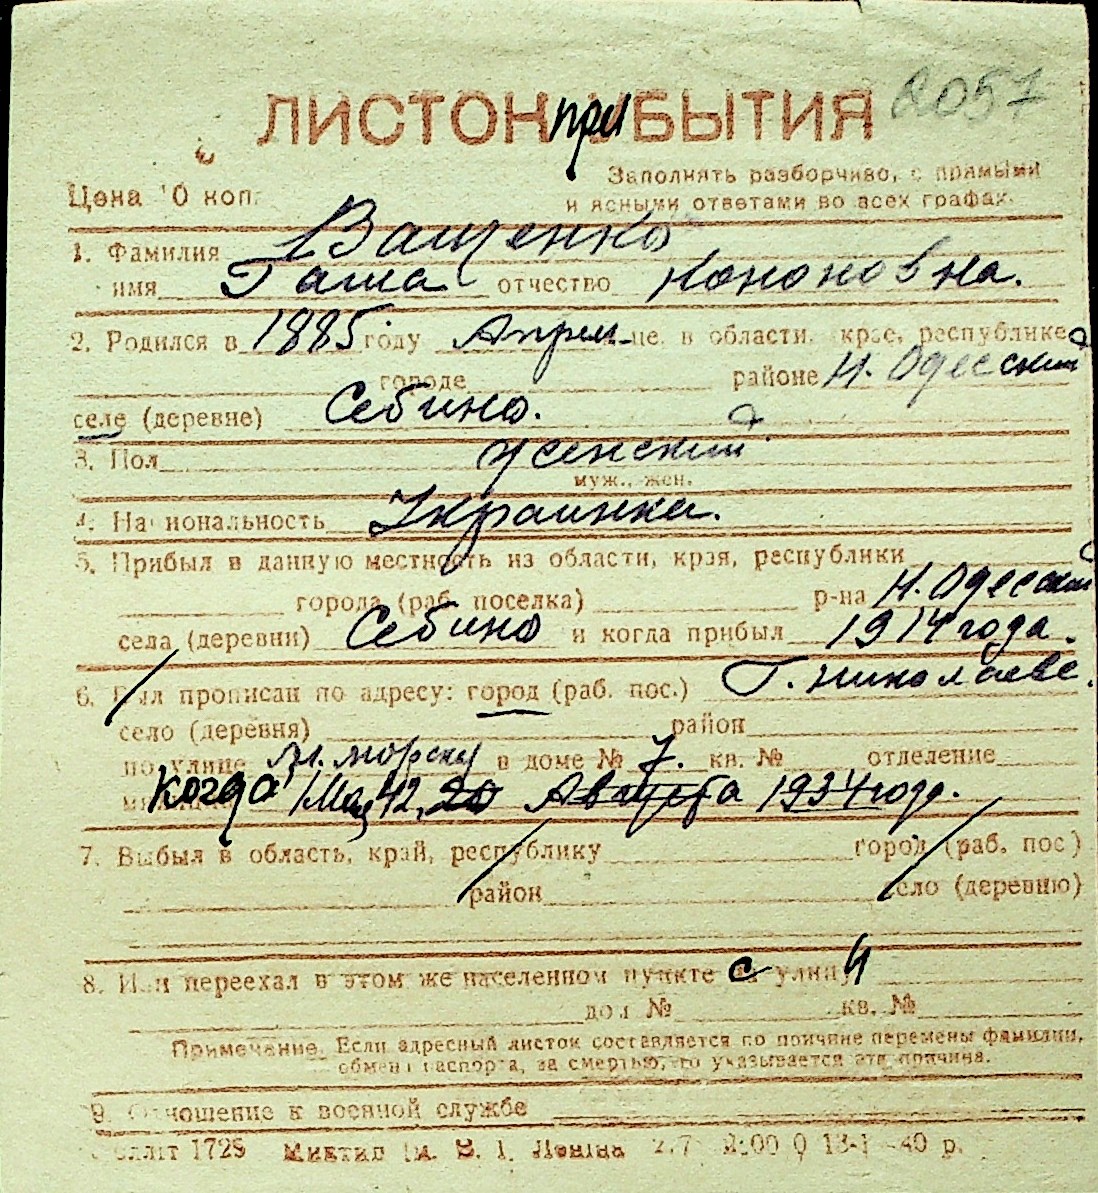 ЛИСТОК при БЫТИЯ 2057
Цена 10 коп. Заполнять разборчиво, с прямыми
и ясными ответами во всех графах.
1. Фамилия Ващенко
имя Гаша отчество Кононовна.
2. Родился в 1885 году Апрел це, в области, крае, республике
городе районе Н. Одесский
селе (деревне) Себино.
3. Пол женский
муж., жен.
4. Национальность Украинка.
5. Прибыл в данную местность из области, края, республики
города (раб. поселка) р-на Н. Одесский
села (деревни) Себино и когда прибыл 1914 года.
6. Был прописан по адресу: город (раб. пос.) Г. Николаеве.
село (деревня) район
по улице М. морску в доме № 7. кв. № отделение
когда 1 Мая, 42, 20 Августа 1934 года.
7. Выбыл в область, край, республику город (раб. пос)
район село (деревню)
8. Или переехал в этом же населенном пункте с улицы
дом № кв. №
Примечание. Если адресный листок составляется по причине перемены фамилии,
обмена паспорта, за смертью, то указывается эта причина.
9. Отношение к военной службе
1729 Ленiна 40 р.